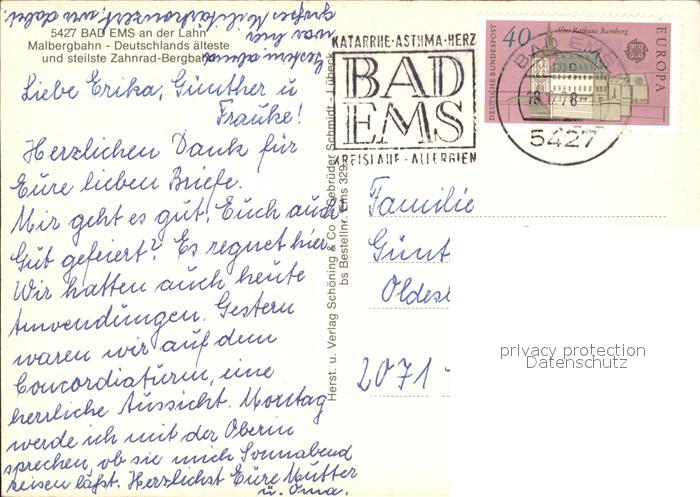 5427 BAD EMS an der Lahn
Malbergbahn - Deutschlands älteste
und steilste Zahnrad-Bergbahn
Liebe Erika, Günther u
Frauke!
Herzlichen Dank für
Eure lieben Briefe.
Mir geht es gut, Euch auch?
Gut gefeiert? Es regnet hier.
Wir hatten auch heute
Anwendungen. Gestern
waren wir auf dem
Concordiaturm, eine
herrliche Aussicht. Montag
werde ich mit der Oberin
sprechen, ob sie mich Sonnabend
reisen läßt. Herzlichst Eure Mutter
u. Oma.
Gestern abend
war hier
großes Militärkonzert, wu dabei.
Herst. u. Verlag Schöning & Co + Gebrüder Schmidt - Lübeck
bs Bestellnr. Ems 329
KATARRHE·ASTHMA·HERZ
BAD
EMS
KREISLAUF·ALLERGIEN
DEUTSCHE BUNDESPOST
40
Altes Rathaus Bamberg
EUROPA
BAD EMS
5427
Familie
Günt
Oldes
2071
privacy protection
Datenschutz